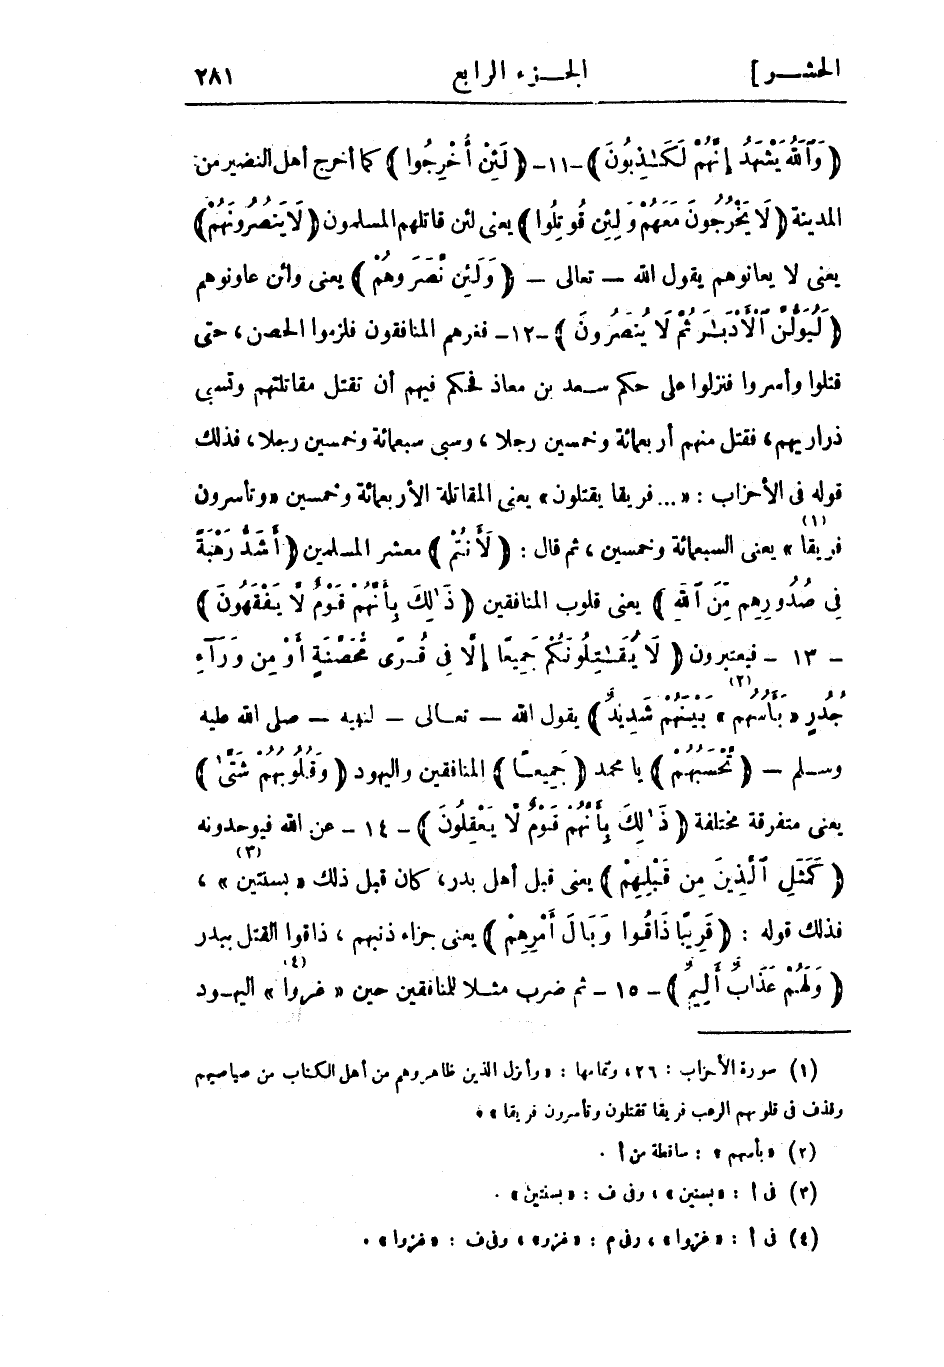 الحشر ]
الجزء الرابع
٢٨١
﴿ وَٱللَّهُ يَشْهَدُ إِنَّهُمْ لَكَـٰذِبُونَ ﴾ -١١- ﴿ لَئِنْ أُخْرِجُوا ﴾ كما أخرج أهل النضير من
المدينة ﴿ لَا يَخْرُجُونَ مَعَهُمْ وَلَئِن قُوتِلُوا ﴾ يعنى لئن قاتلهم المسلمون ﴿ لَا يَنصُرُونَهُمْ ﴾
يعنى لا يعانوهم يقول الله — تعالى — ﴿ وَلَئِن نَّصَرُوهُمْ ﴾ يعنى وائن عاونوهم
﴿ لَيُوَلُّنَّ ٱلْأَدْبَـٰرَ ثُمَّ لَا يُنصَرُونَ ﴾ -١٢- فغرهم المنافقون فلزموا الحصن ، حتى
قتلوا وأسروا فنزلوا على حكم سعد بن معاذ فحكم فيهم أن تقتل مقاتلتهم وتسبى
ذراريهم، فقتل منهم أربعمائة وخمسين رجلا ، وسبى سبعمائة وخمسين رجلا، فذلك
قوله فى الأحزاب : « ... فريقا يقتلون » يعنى المقاتلة الأربعمائة وخمسين «وتأسرون
فريقا (١) » يعنى السبعمائة وخمسين ، ثم قال : ﴿ لَأَنتُمْ ﴾ معشر المسلمين ﴿ أَشَدُّ رَهْبَةً
فِى صُدُورِهِم مِّنَ ٱللَّهِ ﴾ يعنى قلوب المنافقين ﴿ ذَٰلِكَ بِأَنَّهُمْ قَوْمٌ لَّا يَفْقَهُونَ ﴾
- ١٣ - فيعتبرون ﴿ لَا يُقَـٰتِلُونَكُمْ جَمِيعًا إِلَّا فِى قُرًى مُّحَصَّنَةٍ أَوْ مِن وَرَآءِ
جُدُرٍ « بَأْسُهُم » (٢) بَيْنَهُمْ شَدِيدٌ ﴾ يقول الله — تعالى — لنبيه — صلى الله عليه
وسلم — ﴿ تَحْسَبُهُمْ ﴾ يا محمد ﴿ جَمِيعًا ﴾ المنافقين واليهود ﴿ وَقُلُوبُهُمْ شَتَّىٰ ﴾
يعنى متفرقة مختلفة ﴿ ذَٰلِكَ بِأَنَّهُمْ قَوْمٌ لَّا يَعْقِلُونَ ﴾ - ١٤ - عن الله فيوحدونه
﴿ كَمَثَلِ ٱلَّذِينَ مِن قَبْلِهِمْ ﴾ يعنى قبل أهل بدر، كان قبل ذلك « بسنتين » (٣) ،
فذلك قوله : ﴿ قَرِيبًا ذَاقُوا وَبَالَ أَمْرِهِمْ ﴾ يعنى جزاء ذنبهم ، ذاقوا القتل ببدر
﴿ وَلَهُمْ عَذَابٌ أَلِيمٌ ﴾ - ١٥ - ثم ضرب مثلا للمنافقين حين « غروا (٤) » اليهود
(١) سورة الأحزاب : ٢٦، وتمامها : « وأنزل الذين ظاهروهم من أهل الكتاب من صياصيهم
وقذف فى قلوبهم الرعب فريقا تقتلون وتأسرون فريقا » .
(٢) « بأسهم » : ساقطة من أ .
(٣) فى أ : « بسنين » ، وفى ف : « بسنتين » .
(٤) فى أ : « غزوا » ، وفى م : « غزو » ، وفى ف : « غزوا » .